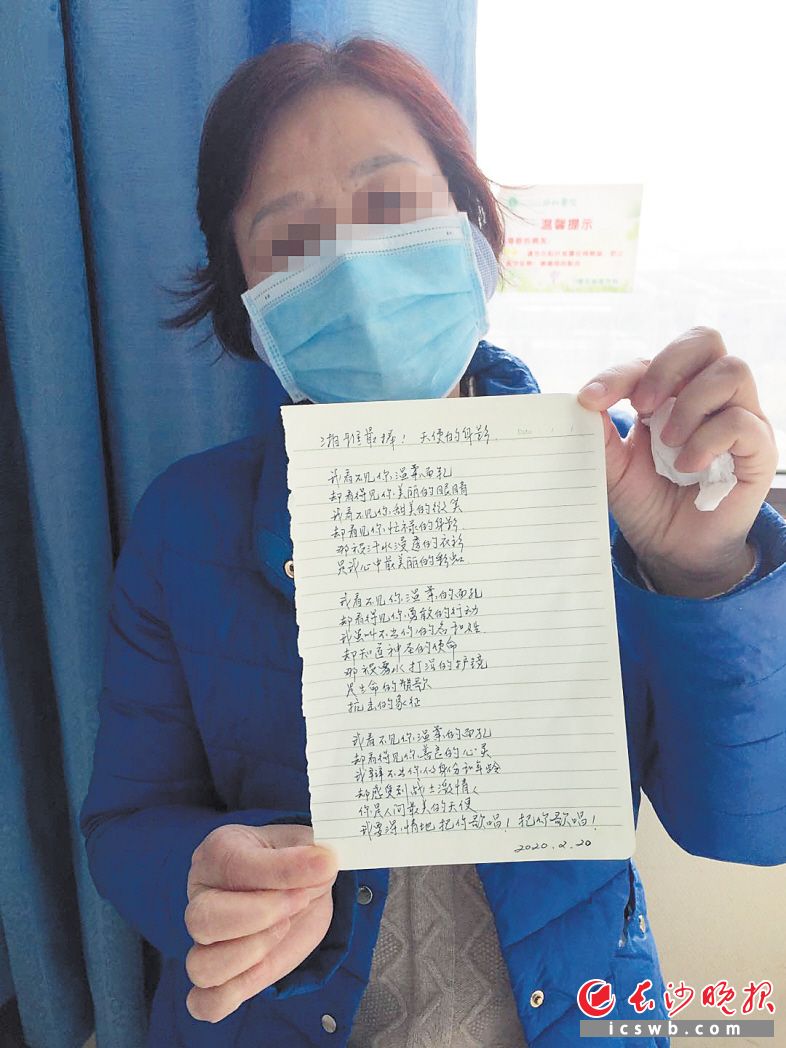 温馨提示
湘雅最棒！天使的身影
Date / /
我看不见你温柔面孔
却看得见你美丽的眼睛
我看不见你甜美的微笑
却看见你忙禄的身影
那被汗水浸透的衣衫
是我心中最美丽的彩虹
我看不见你温柔的面孔
却看得见你勇敢的行动
我虽叫不出你的名和姓
却知道神圣的使命
那被雾水打湿的护镜
是生命的赞歌
抗击的象征
我看不见你温柔的面孔
却看得见你善良的心灵
我辩不出你的身份和年龄
却感觉到战士激情
你是人间最美的天使
我要深情地把你歌唱！把你歌唱！
2020.2.20
长沙晚报
icswb.com